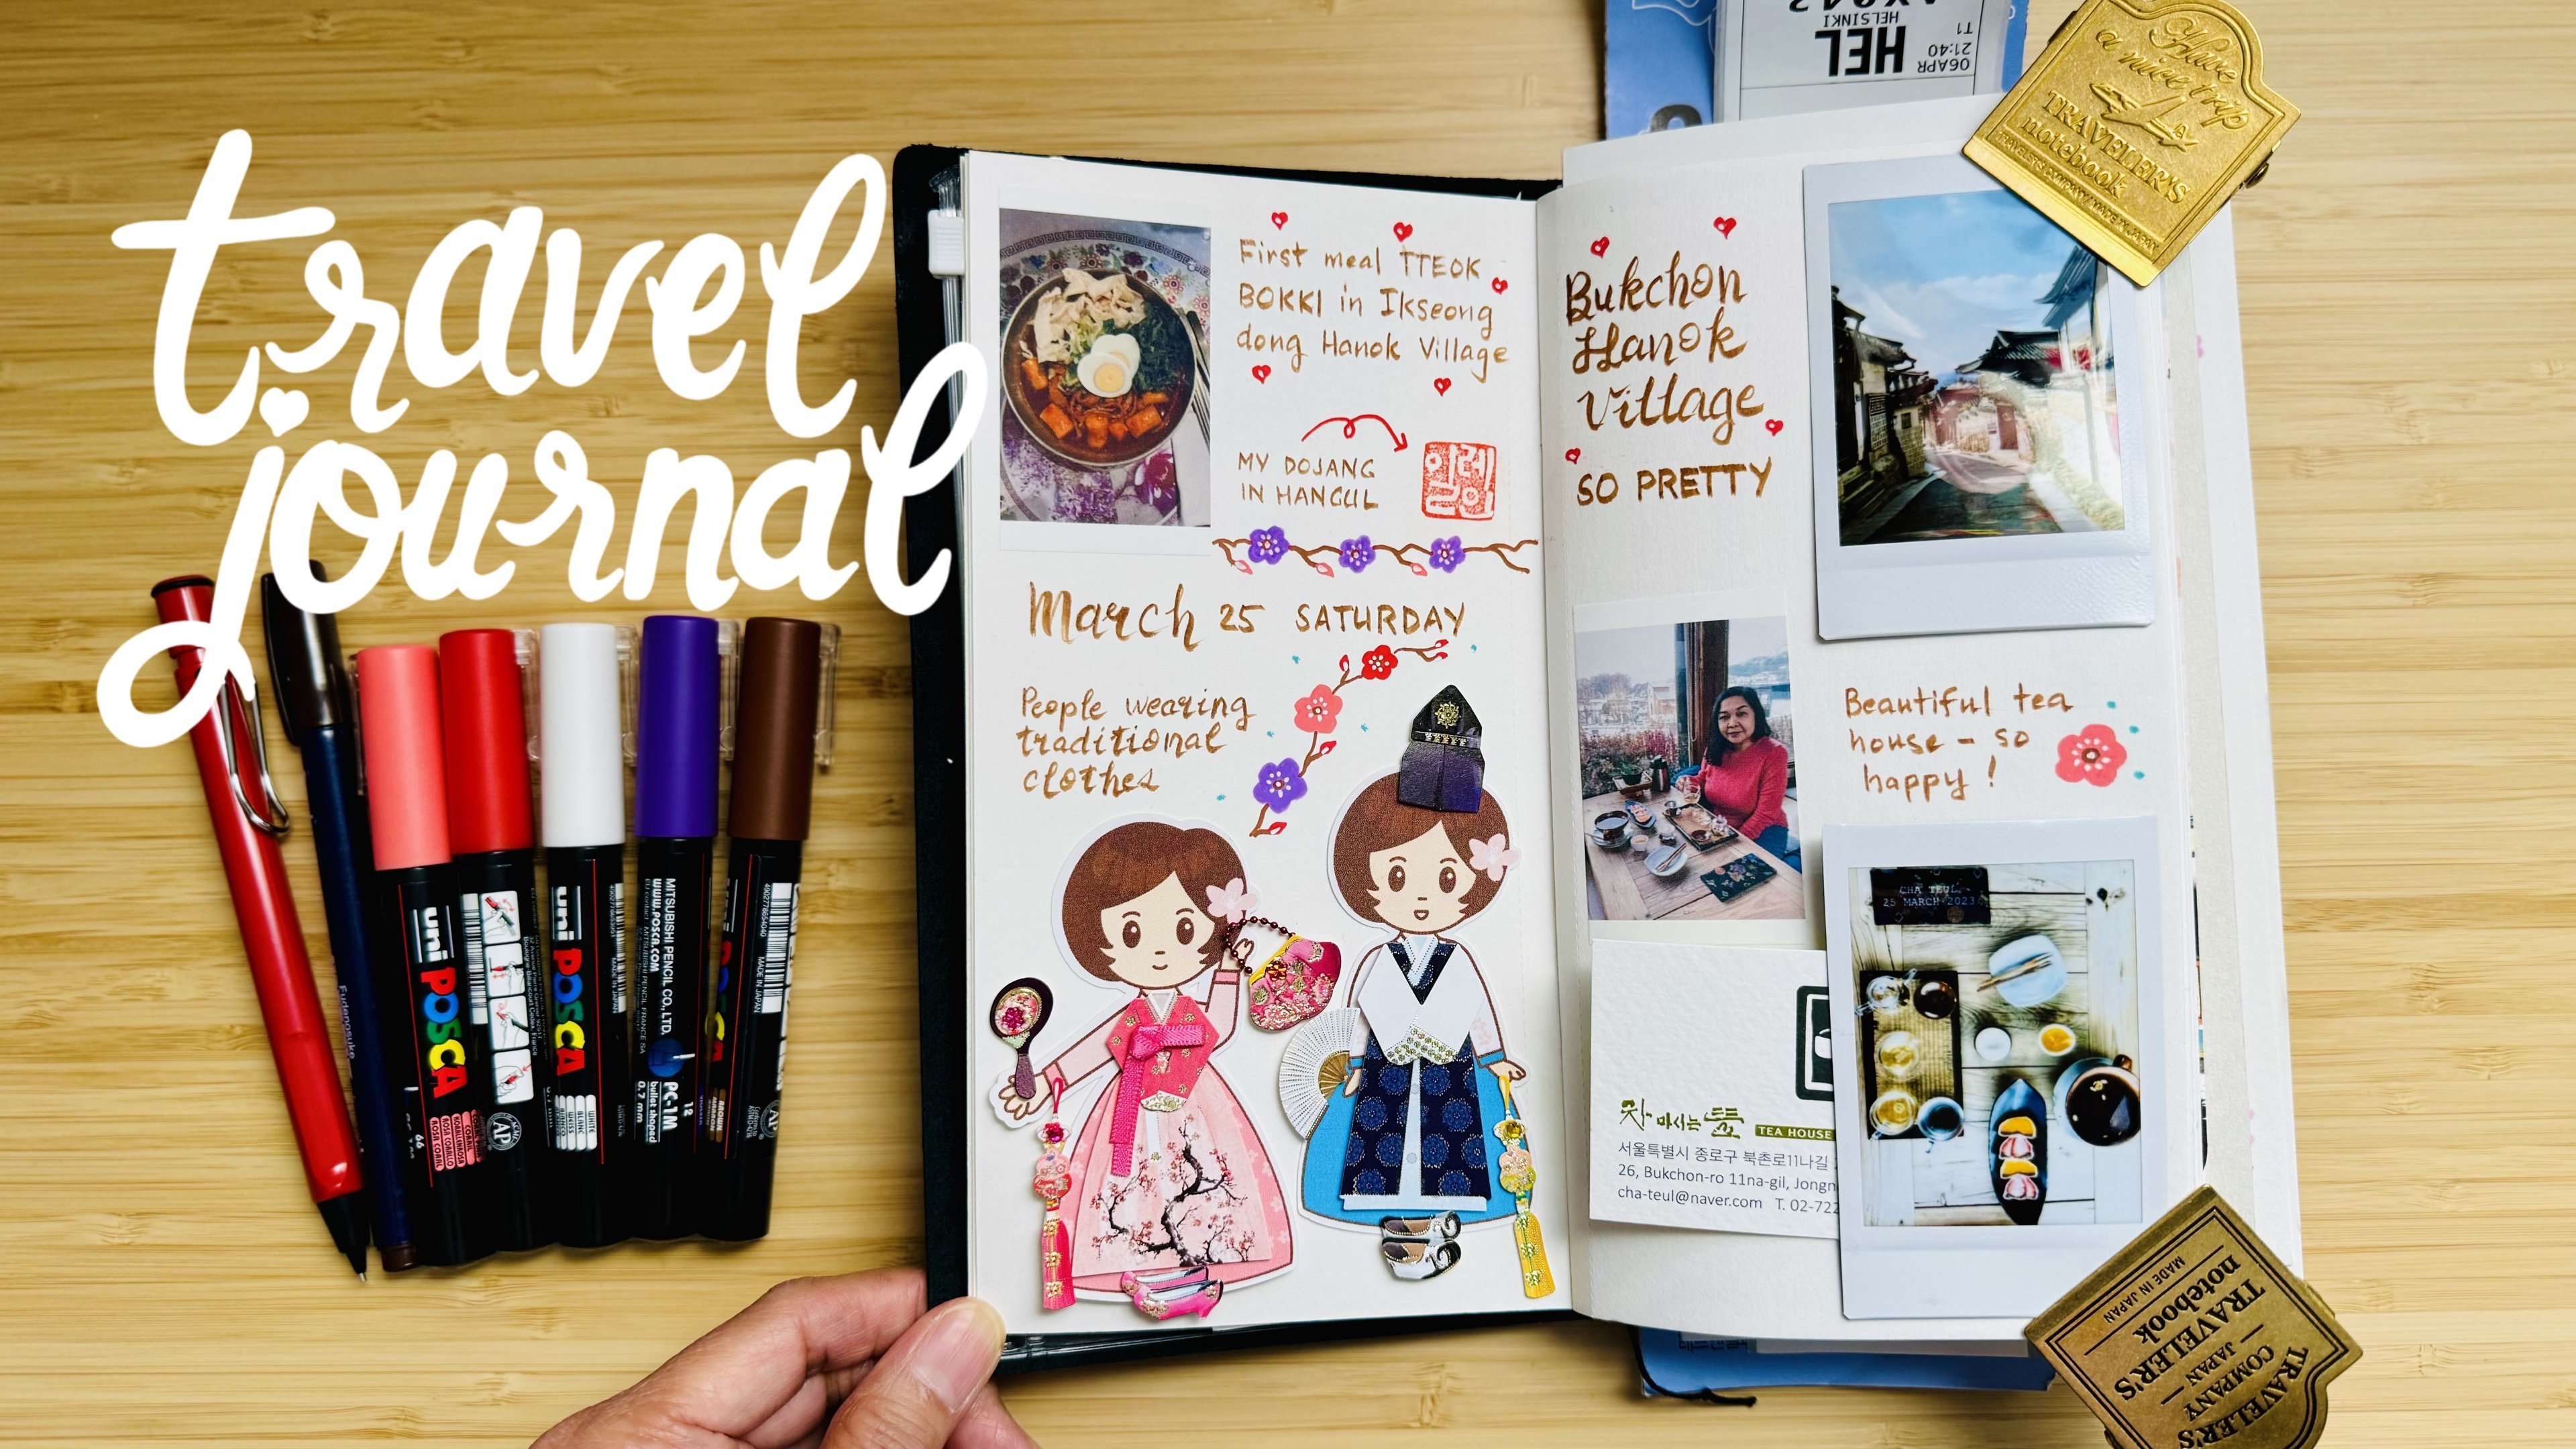 travel
journal
First meal TTEOK
BOKKI in Ikseong
dong Hanok Village
MY DOJANG
IN HANGUL
March 25 SATURDAY
People wearing
traditional
clothes
Bukchon
Hanok
Village
SO PRETTY
Beautiful tea
house - so
happy!
CHA TEUL
25 MARCH 2023
차 마시는 뜰
TEA HOUSE
서울특별시 종로구 북촌로11나길
26, Bukchon-ro 11na-gil, Jongn
cha-teul@naver.com T. 02-722
HELSINKI
HEL
T1
21:40
06APR
Have
a nice trip
TRAVELER'S
notebook
TRAVELER'S COMPANY MADE IN JAPAN
MADE IN JAPAN
TRAVELER'S
notebook
TRAVELER'S
COMPANY
JAPAN
uni POSCA
66
uni POSCA
WHITE
BLANC
WEISS
BLANCO
MITSUBISHI PENCIL CO., LTD.
WWW.POSCA.COM
PC-1M
bullet shaped
0.7 mm
12
POSCA
MADE IN JAPAN
4902778654040
AP
Fudenosuke